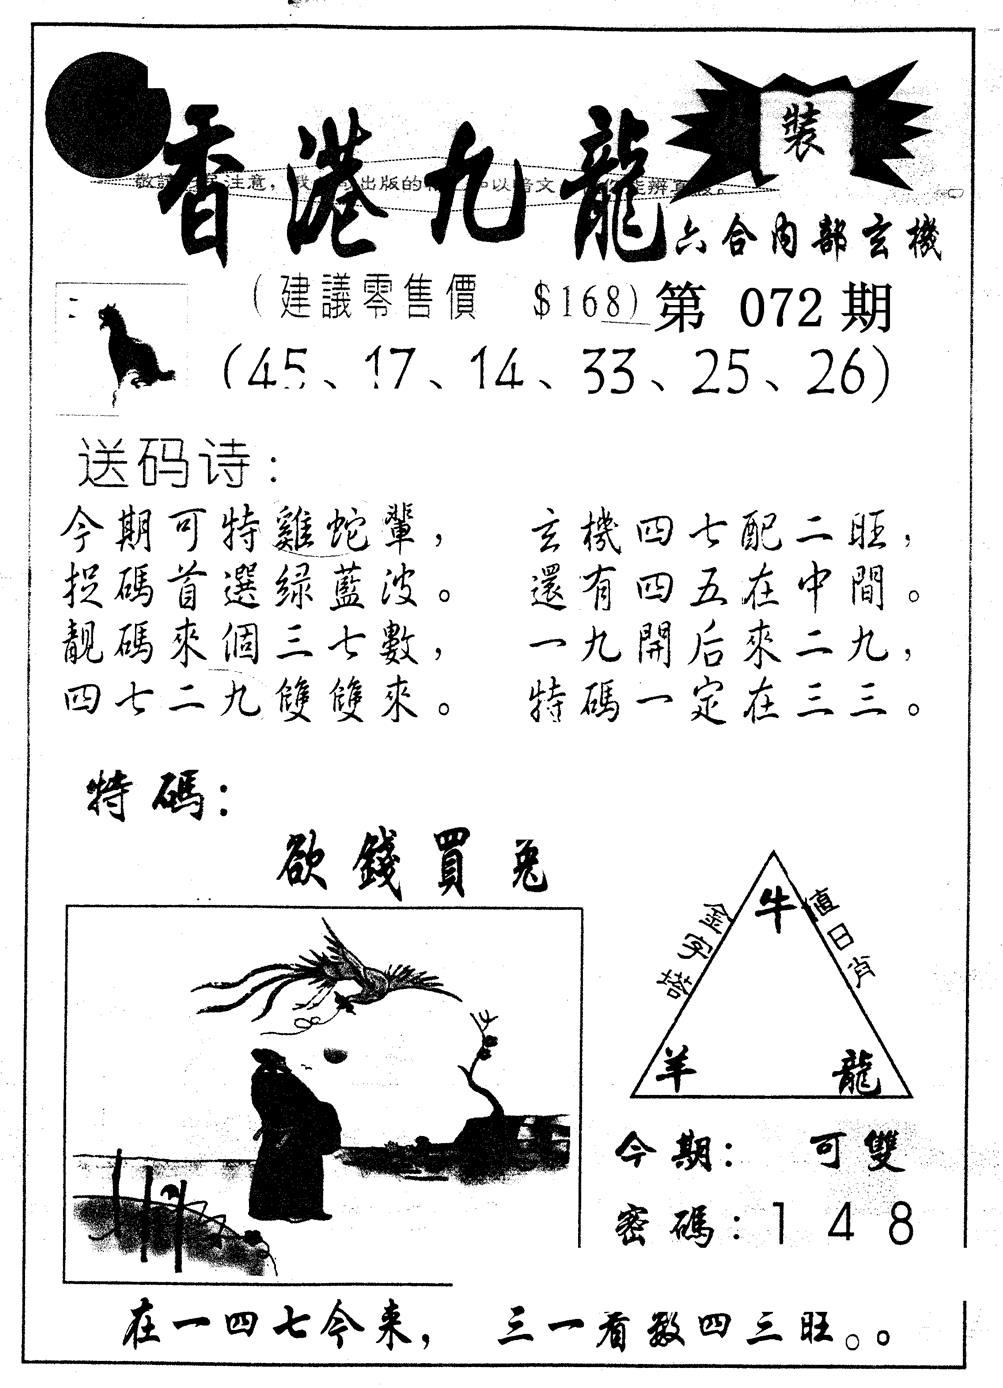 裝
香港九龍
敬請 注意， 出版的 以暗文 辨真
六合內部玄機
(建議零售價 $168) 第 072 期
(45、17、14、33、25、26)
送码诗：
今期可特雞蛇輩， 玄機四七配二旺，
捉碼首選绿藍波。 還有四五在中間。
靚碼來個三七數， 一九開后來二九，
四七二九雙雙來。 特碼一定在三三。
特碼：
欲錢買兔
牛
金字塔
值日肖
羊 龍
今期： 可雙
密碼：1 4 8
在一四七今来， 三一看数四三旺。。